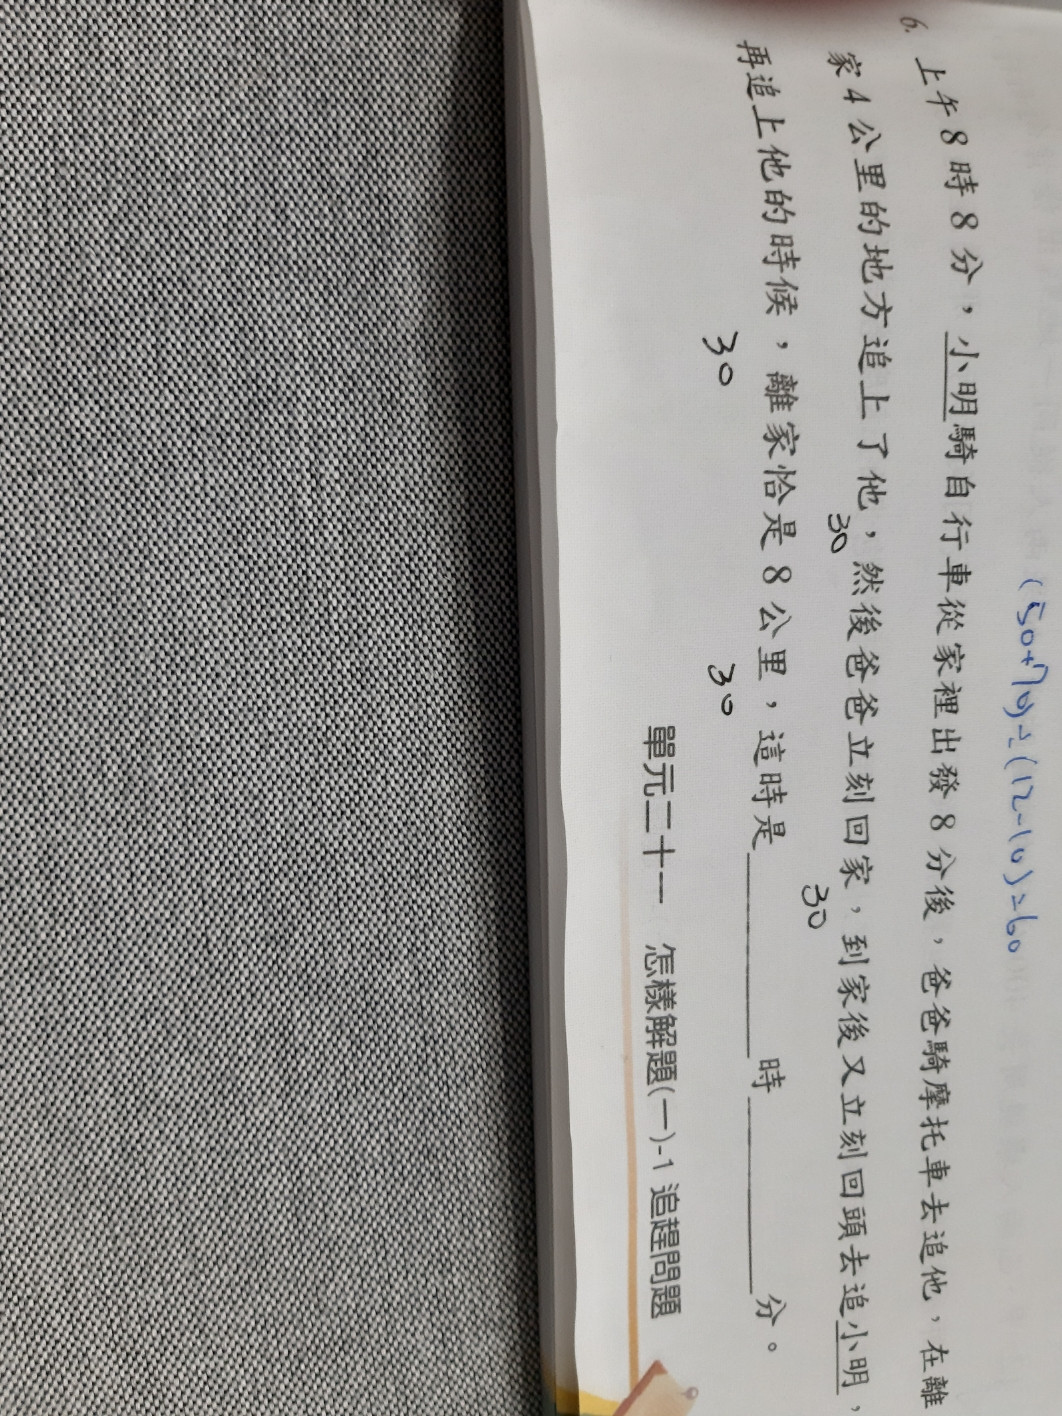 (50+70)=(12-10)=60
6. 上午8時8分，小明騎自行車從家裡出發8分後，爸爸騎摩托車去追他，在離
家4公里的地方追上了他，然後爸爸立刻回家，到家後又立刻回頭去追小明，
30 30
再追上他的時候，離家恰是8公里，這時是 時 分。
30 30
單元二十一 怎樣解題(一)-1 追趕問題